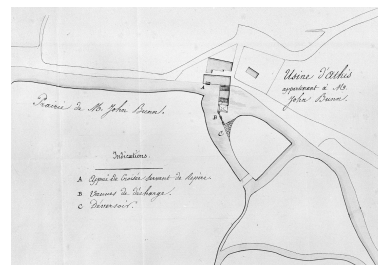 Usine d'Athis
appartenant à Mr.
John Bunn.
Prairie de Mr. John Bunn.
A
B
C
Indications.
A Appui de Croisée servant de Repère.
B Vannes de décharge.
C Déversoir.